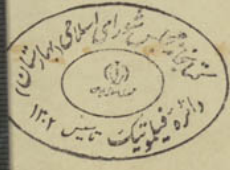 کتابخانه مجلس شورای اسلامی (بهارستان)
دائره فیلموتیک تاسیس ۱۳۰۲